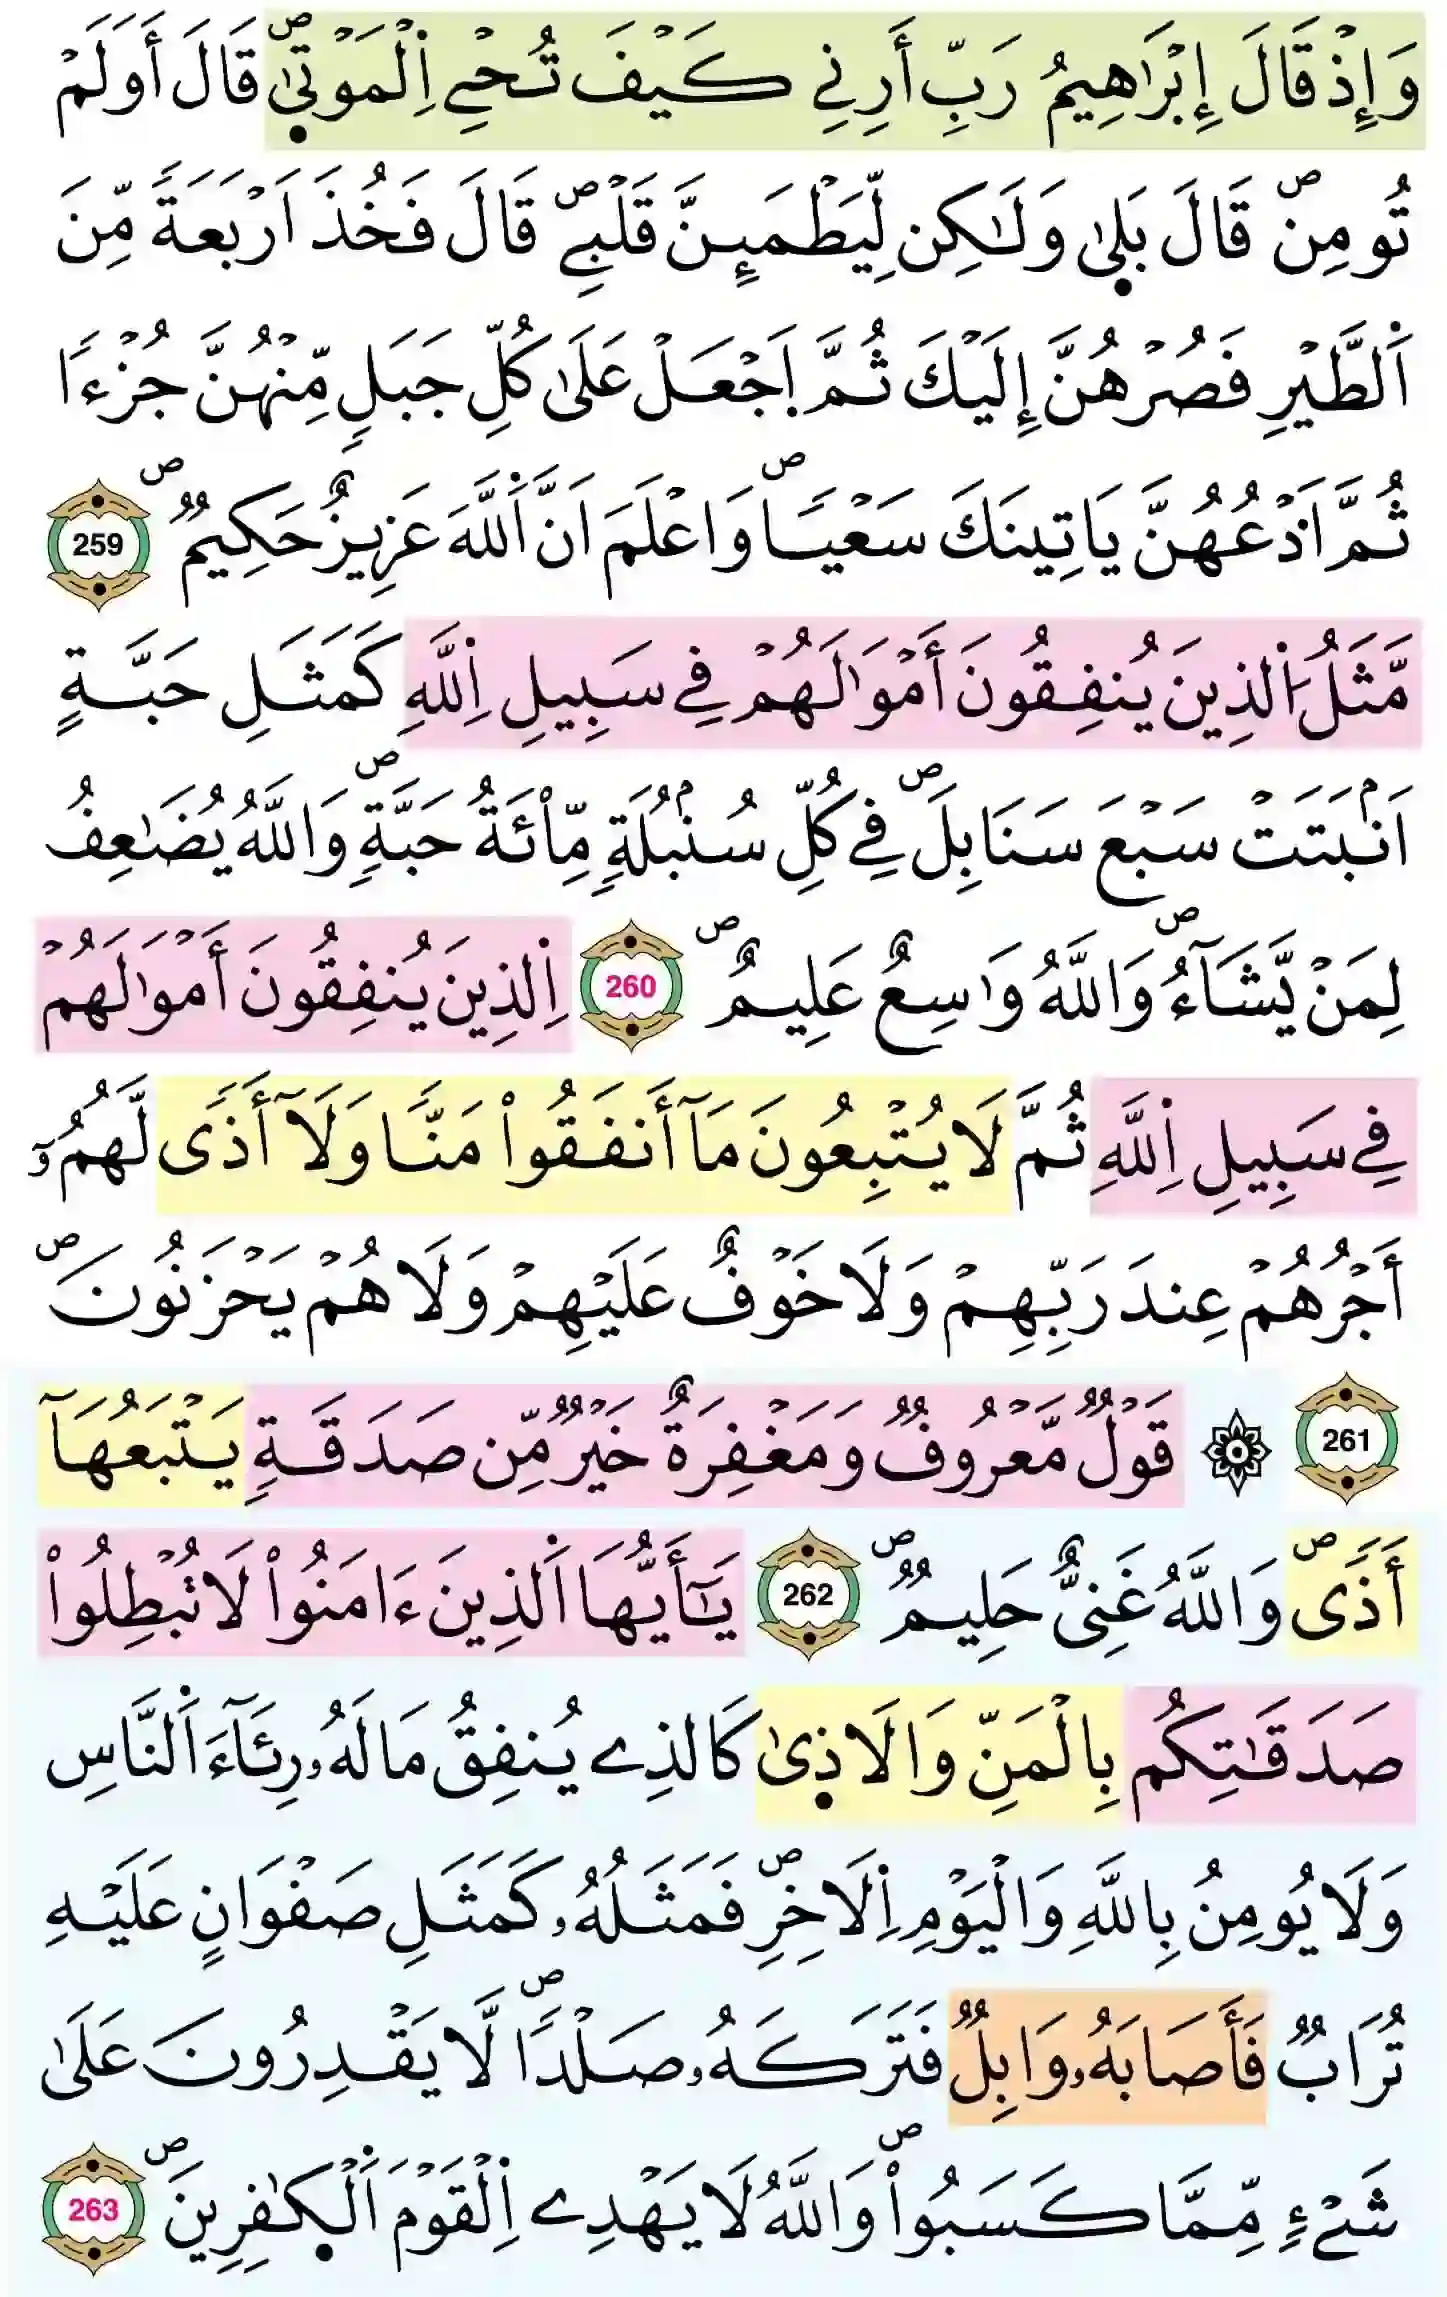 وَإِذْ قَالَ إِبْرَٰهِيمُ رَبِّ أَرِنِے كَيْفَ تُحْيِ اِ۬لْمَوْت۪ىٰۖ قَالَ أَوَلَمْ
تُومِنۖ قَالَ بَل۪ىٰ وَلَٰكِن لِّيَطْمَئِنَّ قَلْبِےۖ قَالَ فَخُذَ اَرْبَعَةً مِّنَ
اَ۬لطَّيْرِ فَصُرْهُنَّ إِلَيْكَ ثُمَّ اَ۪جْعَلْ عَلَىٰ كُلِّ جَبَلٍ مِّنْهُنَّ جُزْءًا
ثُمَّ اَدْعُهُنَّ يَاتِينَكَ سَعْيًاۖ وَاعْلَمَ اَنَّ اَ۬للَّهَ عَزِيزٌ حَكِيمٌۖ 259
مَّثَلُ اُ۬لذِينَ يُنفِقُونَ أَمْوَٰلَهُمْ فِے سَبِيلِ اِ۬للَّهِ كَمَثَلِ حَبَّةٍ
اَنۢبَتَتْ سَبْعَ سَنَابِلَۖ فِے كُلِّ سُنۢبُلَةٍ مِّاْئَةُ حَبَّةٍۖ وَاللَّهُ يُضَٰعِفُ
لِمَنْ يَّشَآءُۖ وَاللَّهُ وَٰسِعٌ عَلِيمٌۖ 260 اِ۬لذِينَ يُنفِقُونَ أَمْوَٰلَهُمْ
فِے سَبِيلِ اِ۬للَّهِ ثُمَّ لَا يُتْبِعُونَ مَآ أَنفَقُواْ مَنًّا وَلَآ أَذًى لَّهُمُۥٓ
أَجْرُهُمْ عِندَ رَبِّهِمْ وَلَا خَوْفٌ عَلَيْهِمْ وَلَا هُمْ يَحْزَنُونَۖ
261 ۞ قَوْلٌ مَّعْرُوفٌ وَمَغْفِرَةٌ خَيْرٌ مِّن صَدَقَةٍ يَتْبَعُهَآ
أَذًىۖ وَاللَّهُ غَنِىٌّ حَلِيمٌۖ 262 يَٰٓأَيُّهَا اَ۬لذِينَ ءَامَنُواْ لَا تُبْطِلُواْ
صَدَقَٰتِكُم بِالْمَنِّ وَالَاذ۪ىٰ كَالذِے يُنفِقُ مَالَهُۥ رِئَآءَ اَ۬لنَّاسِ
وَلَا يُومِنُ بِاللَّهِ وَالْيَوْمِ اِ۬لَاخِرِۖ فَمَثَلُهُۥ كَمَثَلِ صَفْوَانٍ عَلَيْهِ
تُرَابٌ فَأَصَابَهُۥ وَابِلٌ فَتَرَكَهُۥ صَلْدًاۖ لَّا يَقْدِرُونَ عَلَىٰ
شَےْءٍ مِّمَّا كَسَبُواْۖ وَاللَّهُ لَا يَهْدِے اِ۬لْقَوْمَ اَ۬لْكٰ۪فِرِينَۖ 263